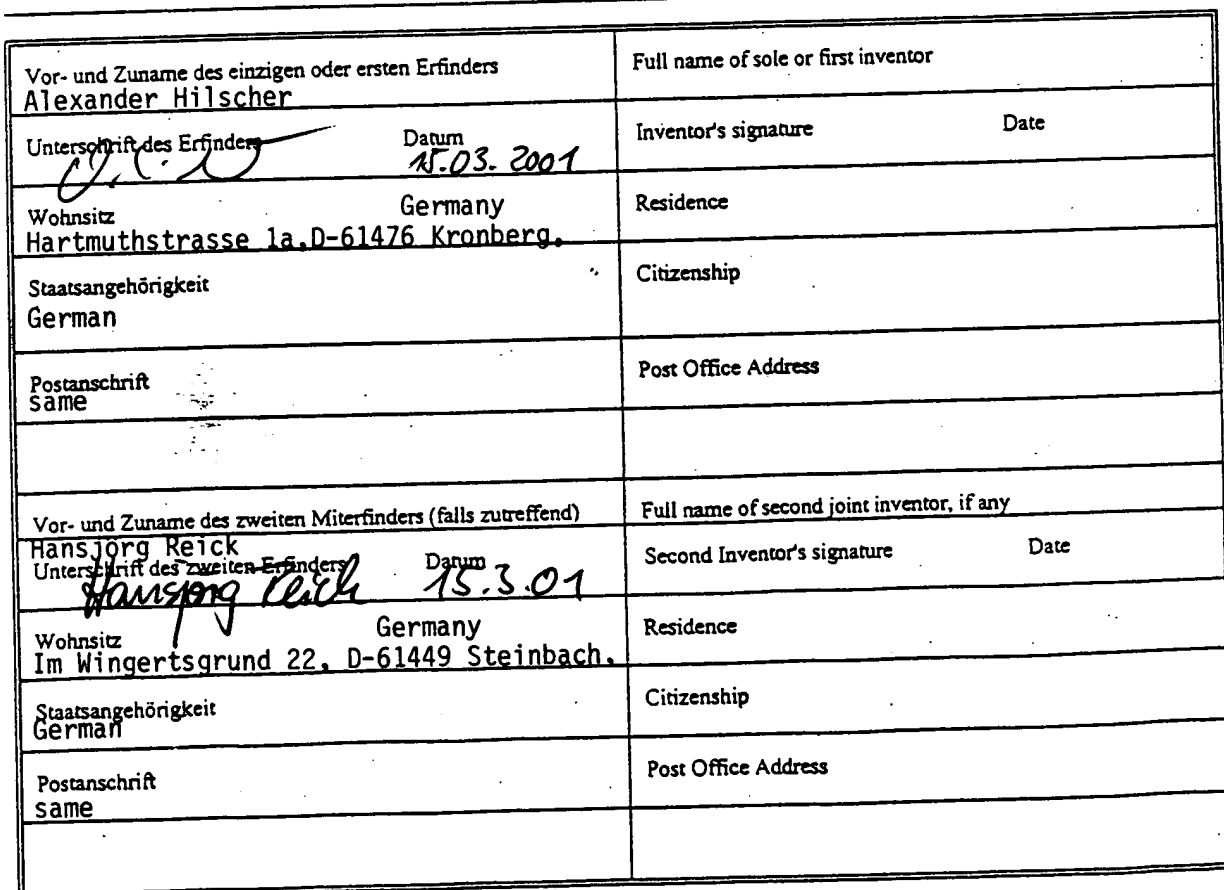 Vor- und Zuname des einzigen oder ersten Erfinders
Alexander Hilscher
Full name of sole or first inventor
Unterschrift des Erfinders Datum
15.03.2001
Inventor's signature Date
Wohnsitz Germany
Hartmuthstrasse 1a,D-61476 Kronberg,
Residence
Staatsangehörigkeit
German
Citizenship
Postanschrift
same
Post Office Address
Vor- und Zuname des zweiten Miterfinders (falls zutreffend)
Hansjörg Reick
Full name of second joint inventor, if any
Unterschrift des zweiten Erfinders Datum
Hansjörg Reick 15.3.01
Second Inventor's signature Date
Wohnsitz Germany
Im Wingertsgrund 22, D-61449 Steinbach,
Residence
Staatsangehörigkeit
German
Citizenship
Postanschrift
same
Post Office Address